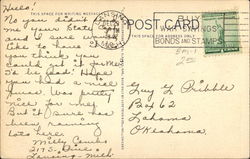 Hello!
THIS SPACE FOR WRITING MESSAGES
POST CARD
THIS SPACE FOR ADDRESS ONLY
BONDS AND STAMPS
No you didn't
me your State
and I sure would
like to have it.
you think you
could get it for me
I'd be glad. Hope
you had a nice
Xmas. Was pretty
nice for me.
But of course has
been raining
lots here.
Milly
Lansing, Mich.
Guy L Pribble
Box 62
Lahoma
Oklahoma.